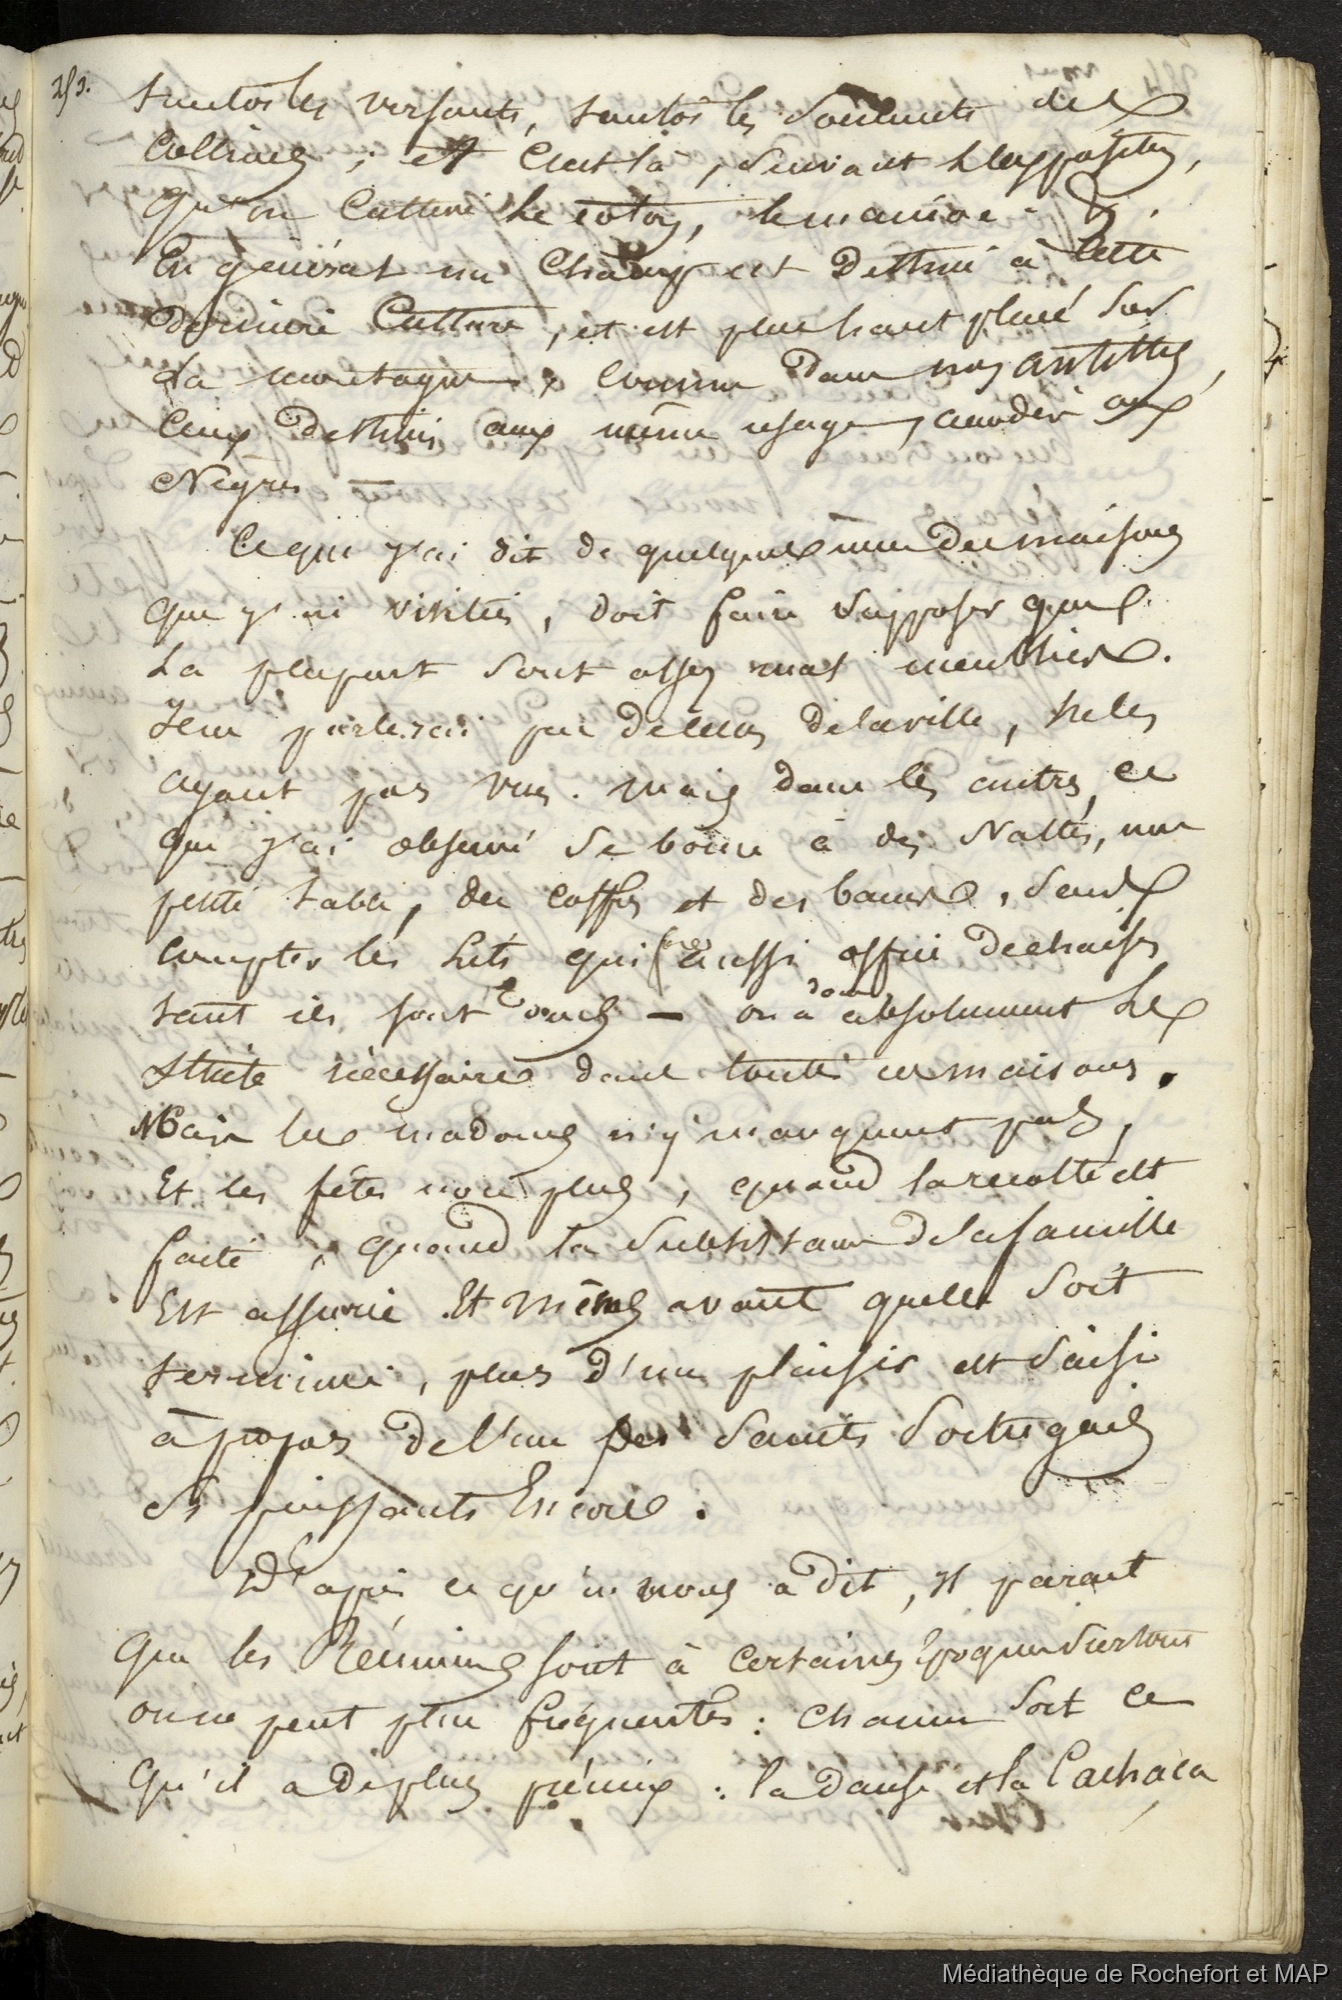 tantôt les versants, tantôt les sommets des
collines ; et c'est là, suivant l'exposition,
qu'on cultive le coton, le manioc - &.
En général un champ est destiné à cette
dernière culture, et est plus haut placé sur
la montagne, comme dans nos antilles,
ceux destinés aux même usage, accordés aux
Nègres —
Ce que j'ai dit de quelques unes des maisons
que j'ai visitées, doit faire supposer que
la plupart sont assez mal meublées.
Je ne parlerai pas de celles de la ville, ne les
ayant pas vues. mais dans les autres, ce
que j'ai observé se borne à des Nattes, une
petite table, des coffres et des bancs, sans
compter les lits qui aussi office de chaises
tant ils sont — on a donc absolument le
stricte nécessaire dans toutes ces maisons.
Mais les madones n'y manquent pas,
Et les fêtes non plus, quand la récolte est
faite, quand la subsistance de la famille
Est assurée. Et même avant quelle soit
terminée, plus d'un plaisir est saisi
à propos de l'un des saints Portugais
si puissants Encore.
D'après ce qu'on nous a dit, il parait
que les Réunions sont à certaines Epoques surtout
on ne peut plus fréquentes : chacun sort ce
qu'il a de plus précieux : la danse et la Cachaca
Médiathèque de Rochefort et MAP